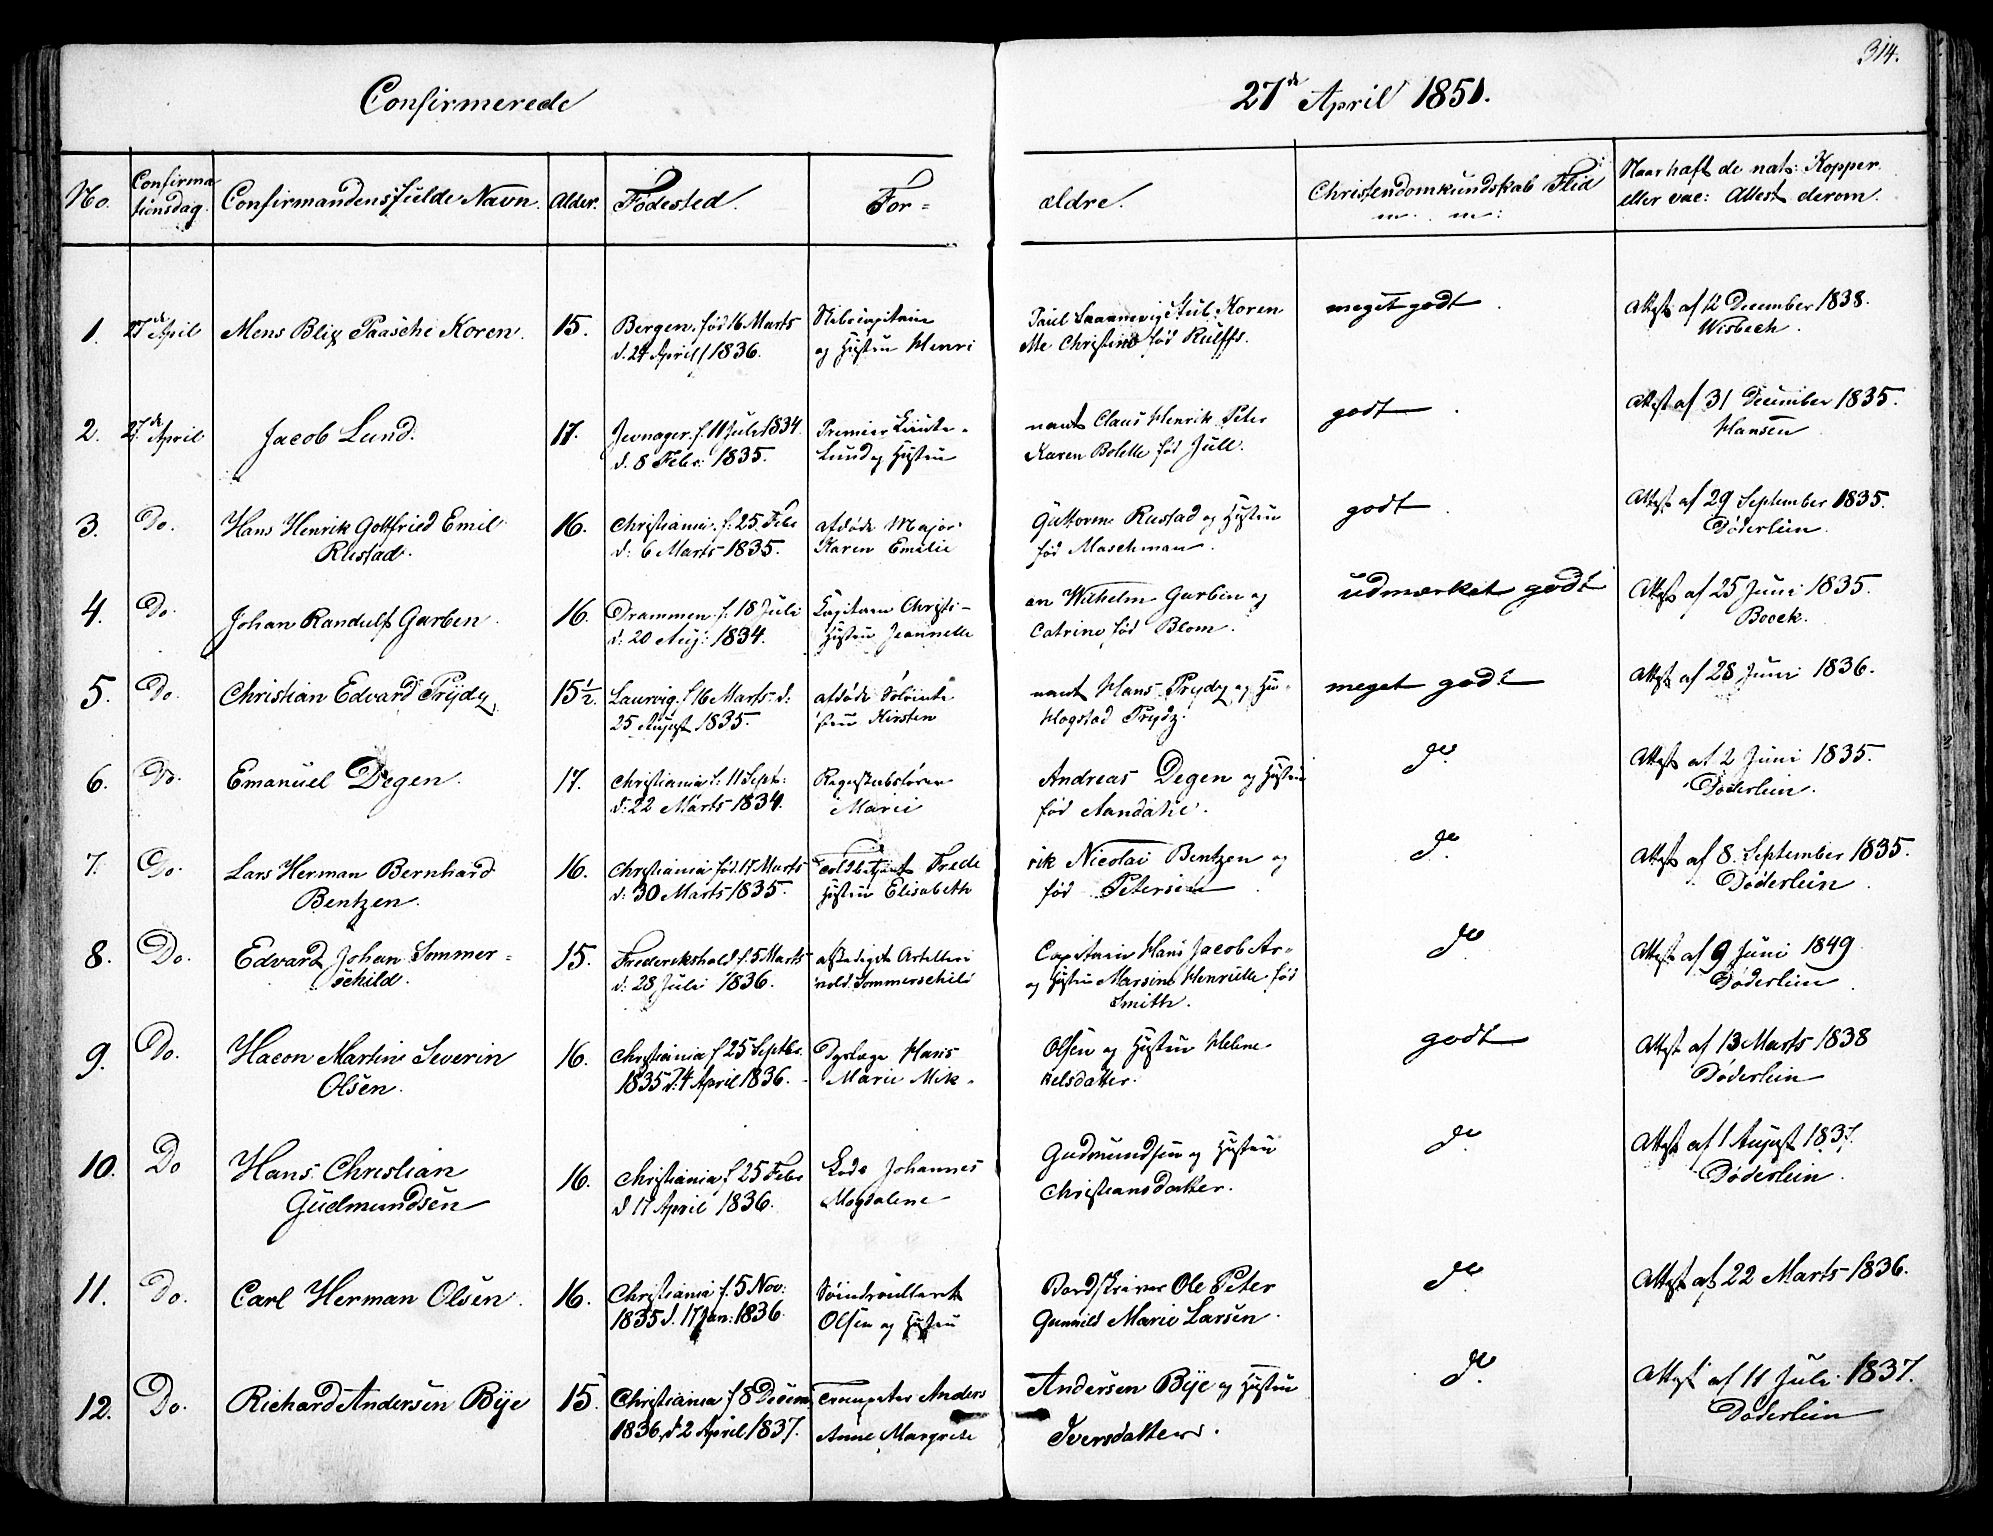 314.
Confirmerede 27de April 1851.
No. Confirmationsdag. Confirmandens fulde Navn. Alder. Fødested. For- ældre. Christendomskundskab Flid m. m: Naar haft de nat: Kopper eller vac: Attest derom.
1. 27de April Mens Blix Paasche Koren. 15. Bergen. fød 16 Marts og Hustru Henri
d. 24 April 1836. Koren
ette Christine fød Rulffs. meget godt. Attest af 12 December 1838.
Wisbech.
2. 27de April Jacob Lund. 17. Jevnager. f. 11 Juli 1834 Premier Lieute- nant Claus Henrik Peter godt. Attest af 31 December 1835.
d. 8 Febr: 1835. Lund og Hustru Karen Bolette fød Juell. Hansen
3. Do. Hans Henrik Gottfried Emil 16. Christiania. f. 25 Febr afdøde Major Guttorm Rustad og Hustru godt. Attest af 29 September 1835.
Rustad. d: 6 Marts 1835. Karen Emilie fød Maschman. Døderlein.
4. Do. Johan Randulf Garben. 16. Drammen. f. 18 Juli Kapitain Christi- an Wilhelm Garben og udmærket godt Attest af 25 Juni 1835.
d: 20 Aug: 1834. Hustru Jeannette Catrine fød Blom. Bock.
5. Do. Christian Edvard Trydz, 15½. Laurvig. f 16 Marts. d: afdøde Sølieute- nant Hans Trydz og Hu- meget godt Attest af 28 Juni 1836.
25 August 1835. stru Kirsten Hogstad Trydz.
6. Do. Emanuel Degen. 17. Christiania f. 11 Sept: Regnskabsfører Andreas Degen og Hustru do. Attest af 2 Juni 1835.
d: 22 Marts 1834. Marie fød Døderlein.
7. Do. Lars Herman Bernhard 16. Christiania fød 17 Marts Toldbetjent Frede rik Nicolai Bentzen og do. Attest af 8. September 1835.
Bentzen. d: 30 Marts 1835. Hustru Elisabeth fød Petersen Døderlein
8. Do. Edvard Johan Sommer- 15. Frederikshald f. 5 Marts afskediget Artilleri Capitain Hans Jacob Ar- do Attest af 9 Juni 1849
schild. d: 28 Juli 1836. nold Sommerschild og Hustru Marsine Henriette fød Døderlein
Smith.
9. Do. Hacon Martin Severin 16. Christiania f 25 Septbr. Hans Olsen og Hustru Helene godt Attest af 13 Marts 1838
Olsen. 1835 d: 4 April 1836. Marie Mik- kelsdatter. Døderlein
10. Do Hans Christian 16. Christiania f 25 Febr Lods Johannes Gudmundsen og Hustru do. Attest af 1 August 1837.
Gudmundsen d 17 April 1836. Magdalene Christiansdatter. Døderlein.
11. Do. Carl Herman Olsen. 16. Christiania f. 5 Nov: Søindroulleret Bordskriver Ole Peter do. Attest af 22 Marts 1836.
1835 d. 17 Jan: 1836. Olsen og Hustru Gunnild Marie Larsen.
12. Do. Richard Andersen Bye 15. Christiania f 8 Decem Trompeter Anders Andersen Bye og Hustru do. Attest af 11 Juli 1837.
1836, d. 2 April 1837. Anne Margrete Iversdatter. Døderlein